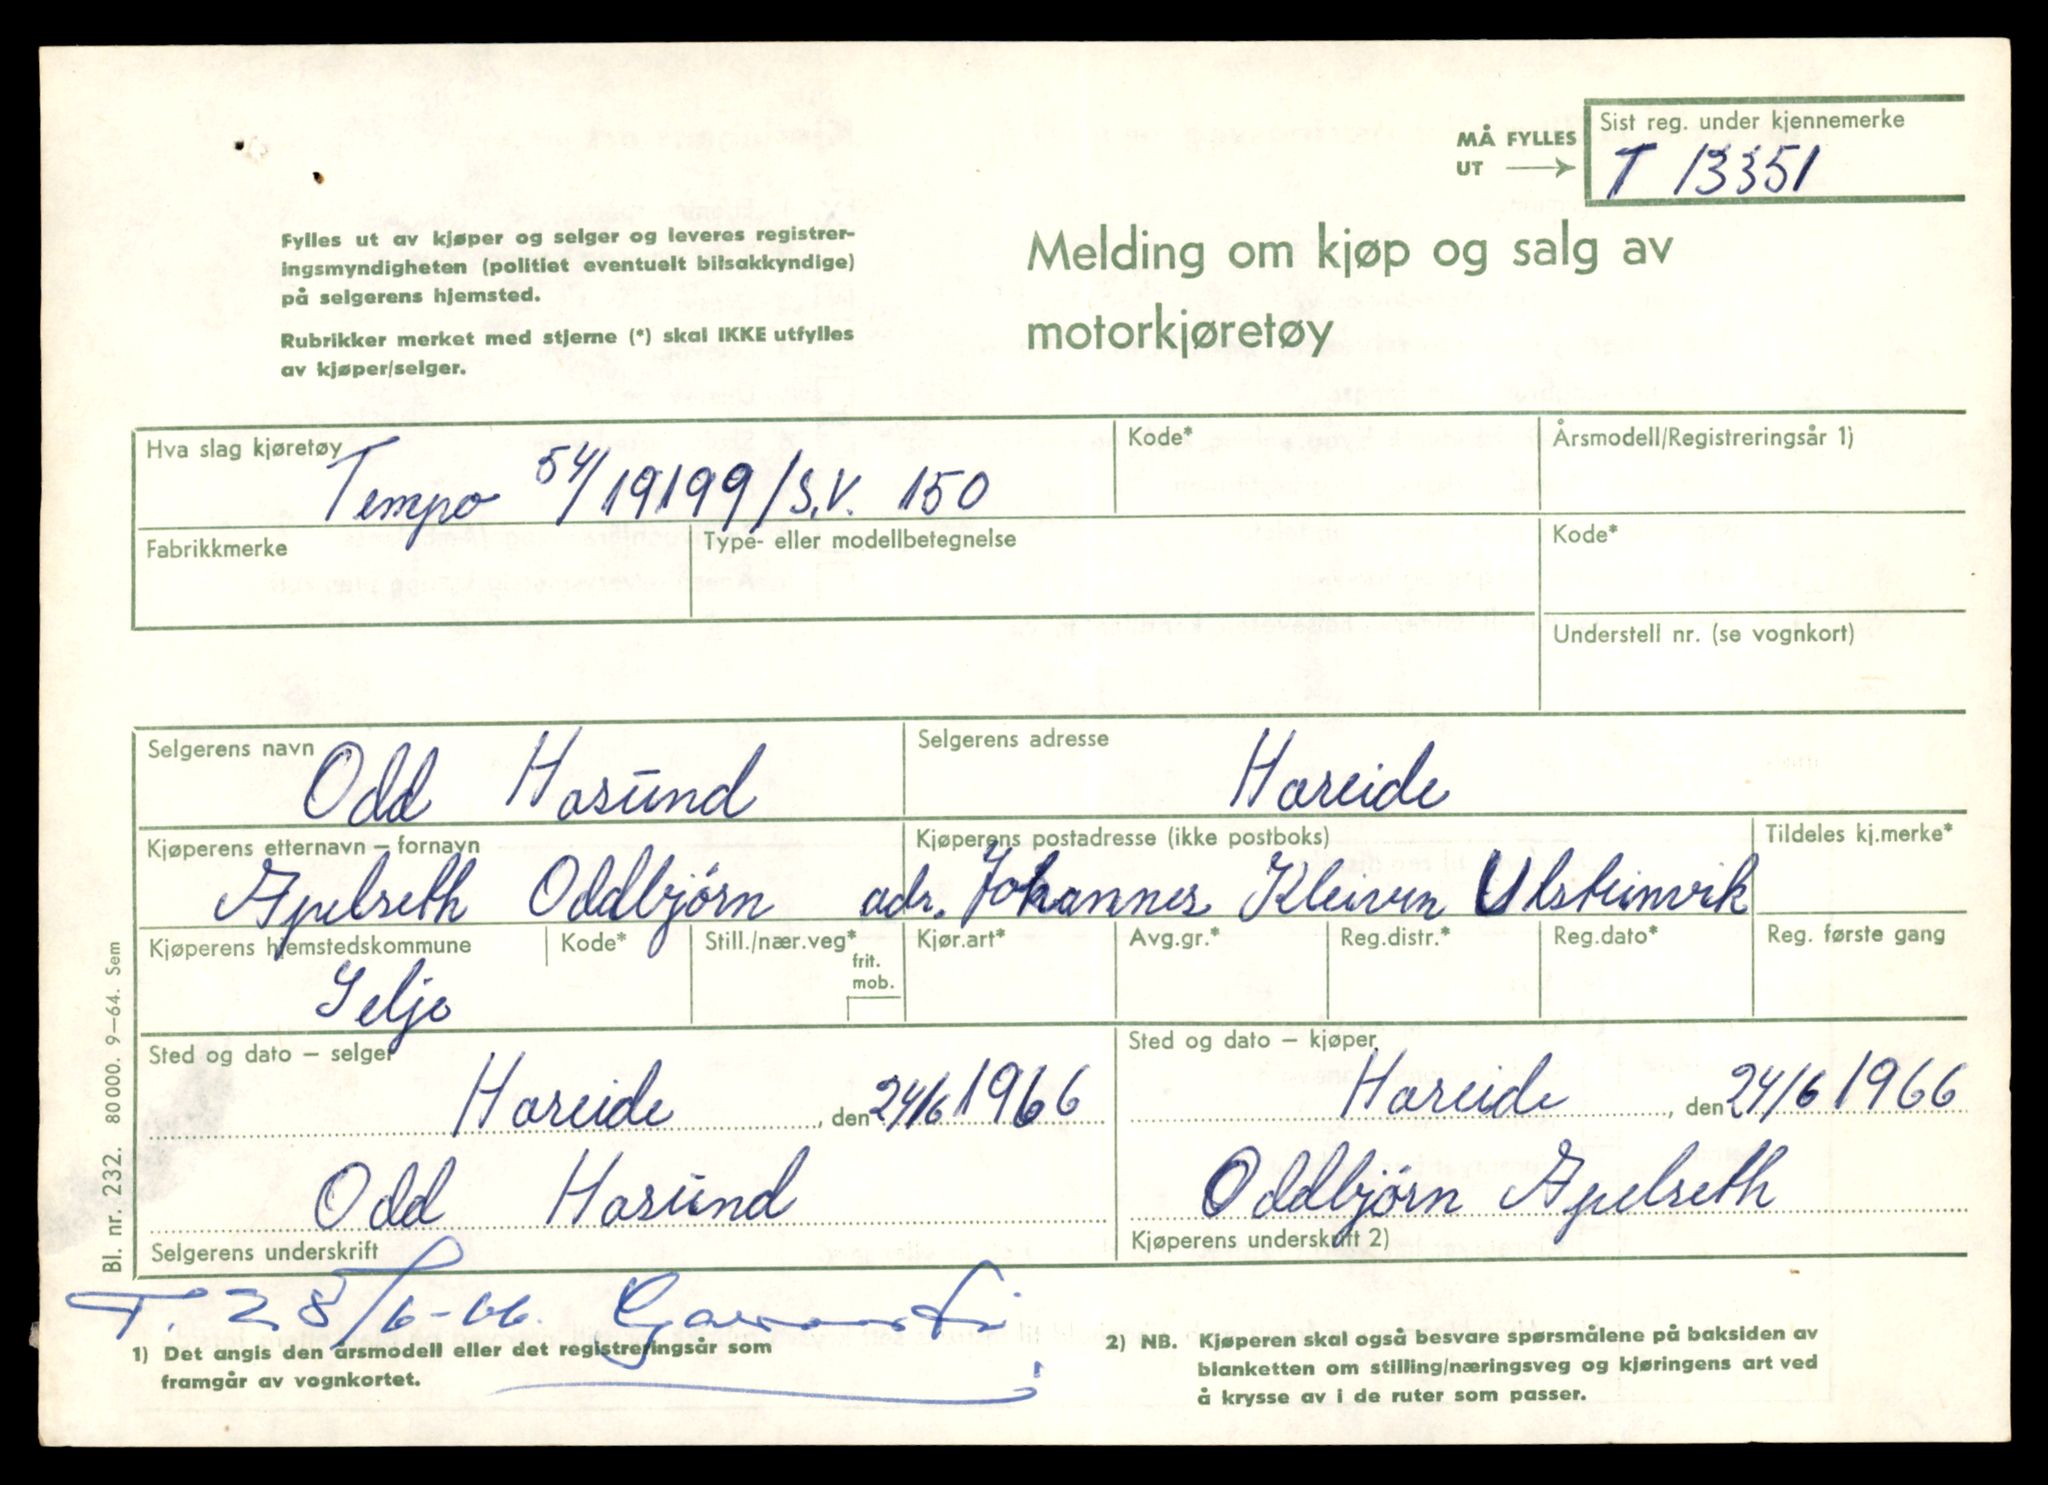 MÅ FYLLES UT → Sist reg. under kjennemerke
T 13351
Fylles ut av kjøper og selger og leveres registrer-
ingsmyndigheten (politiet eventuelt bilsakkyndige)
på selgerens hjemsted.
Rubrikker merket med stjerne (*) skal IKKE utfylles
av kjøper/selger.
Melding om kjøp og salg av
motorkjøretøy
Hva slag kjøretøy Kode* Årsmodell/Registreringsår 1)
Tempo 54/19199/S.V. 150
Fabrikkmerke Type- eller modellbetegnelse Kode*
Understell nr. (se vognkort)
Selgerens navn Selgerens adresse
Odd Hasund Hareide
Kjøperens etternavn – fornavn Kjøperens postadresse (ikke postboks) Tildeles kj.merke*
Apelseth Oddbjørn adr. Johannes Kleiven Ulsteinvik
Kjøperens hjemstedskommune Kode* Still./nær.veg* frit. mob. Kjør.art* Avg.gr.* Reg.distr.* Reg.dato* Reg. første gang
Selje
Sted og dato – selger Sted og dato – kjøper
Hareide, den 24/6 1966 Hareide, den 24/6 1966
Odd Hasund Oddbjørn Apelseth
Selgerens underskrift Kjøperens underskrift 2)
T. 28/6-66.
1) Det angis den årsmodell eller det registreringsår som
framgår av vognkortet.
2) NB. Kjøperen skal også besvare spørsmålene på baksiden av
blanketten om stilling/næringsveg og kjøringens art ved
å krysse av i de ruter som passer.
Bl. nr. 232. 80000. 9–64. Sem